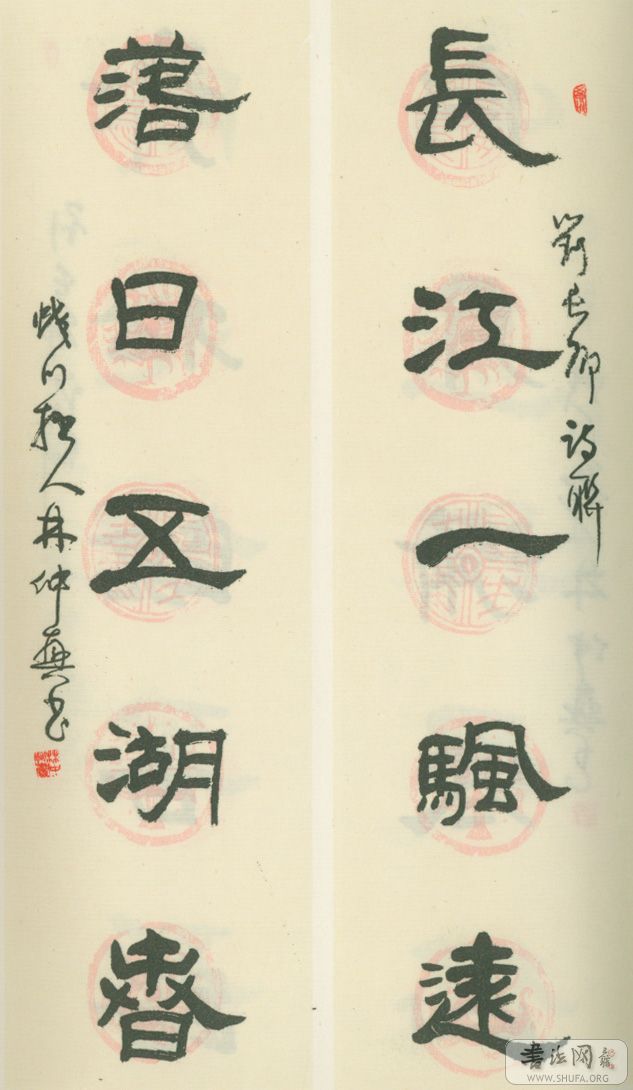 長江一颿遠
劉長卿詩聯
落日五湖春
人林仲興書
書法网
WWW.SHUFA.ORG